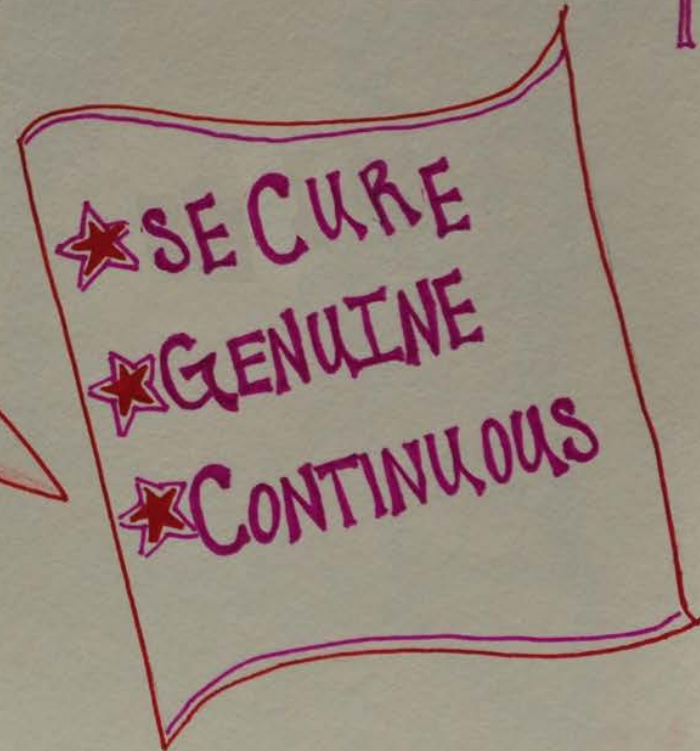 SECURE
GENUINE
CONTINUOUS